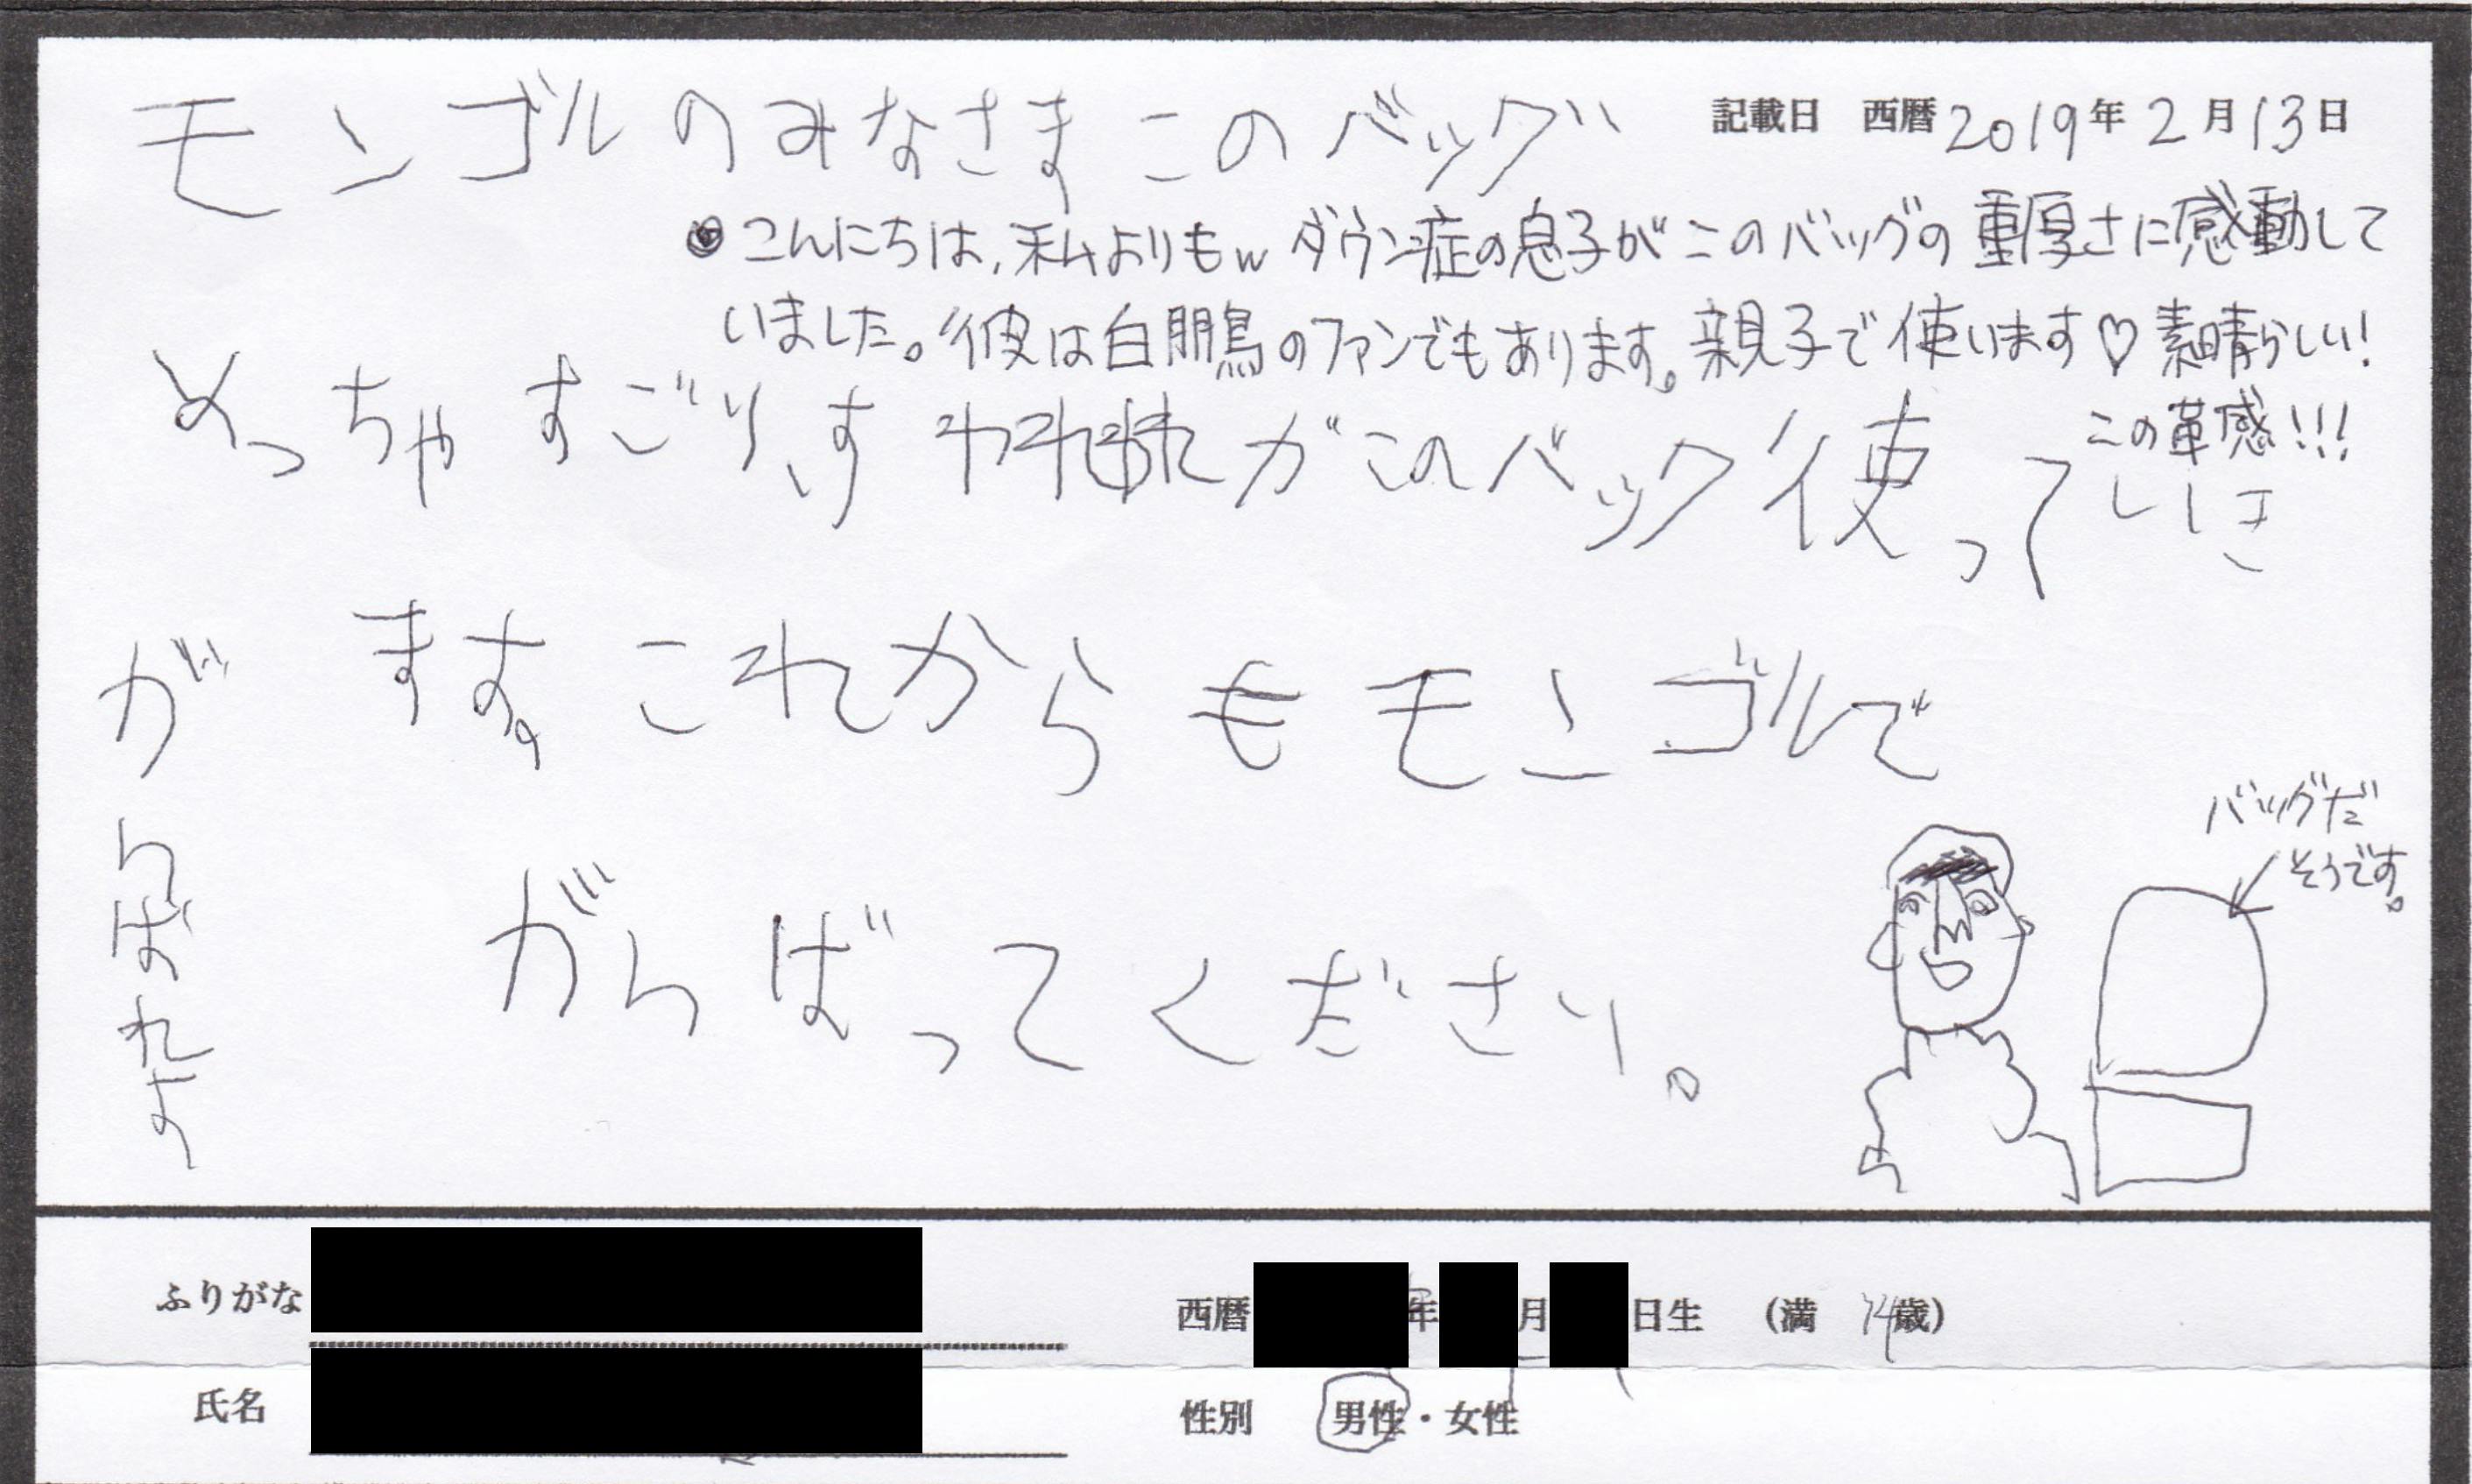 モンゴルのみなさまこのバッグ
記載日 西暦2019年2月13日
こんにちは、私よりもwダウン症の息子がこのバッグの重厚さに感動して
いました。彼は白鵬のファンでもあります。親子で使います♡素晴らしい!
この革感!!!
めっちゃすごいす
がこのバック使って
ます。これからもモンゴルで
がんばってください。
がんばれよ
バッグだ
そうです。
ふりがな
西暦 年 月 日生 (満 14歳)
氏名
性別 男性・女性